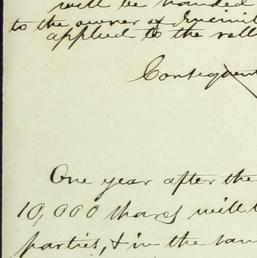 will be handed
to the owner of
applied to the
Consequen
One year after the
10,000 shares will
parties, & in the